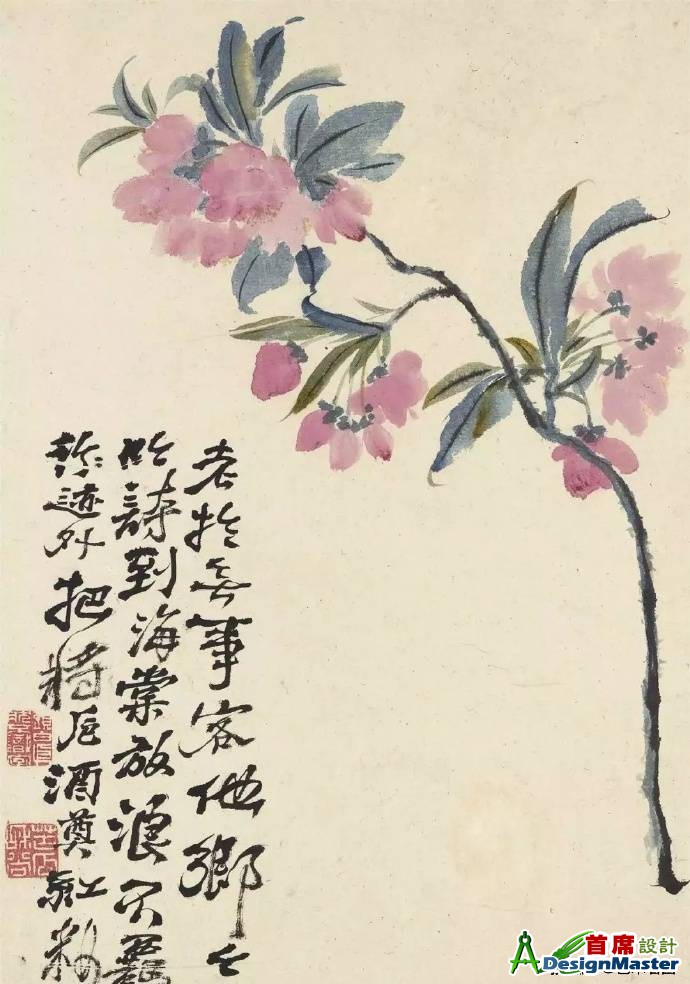 老於無事客他鄉
吟詩到海棠放浪不羈
迹外把將卮酒奠紅
首席設計
DesignMaster